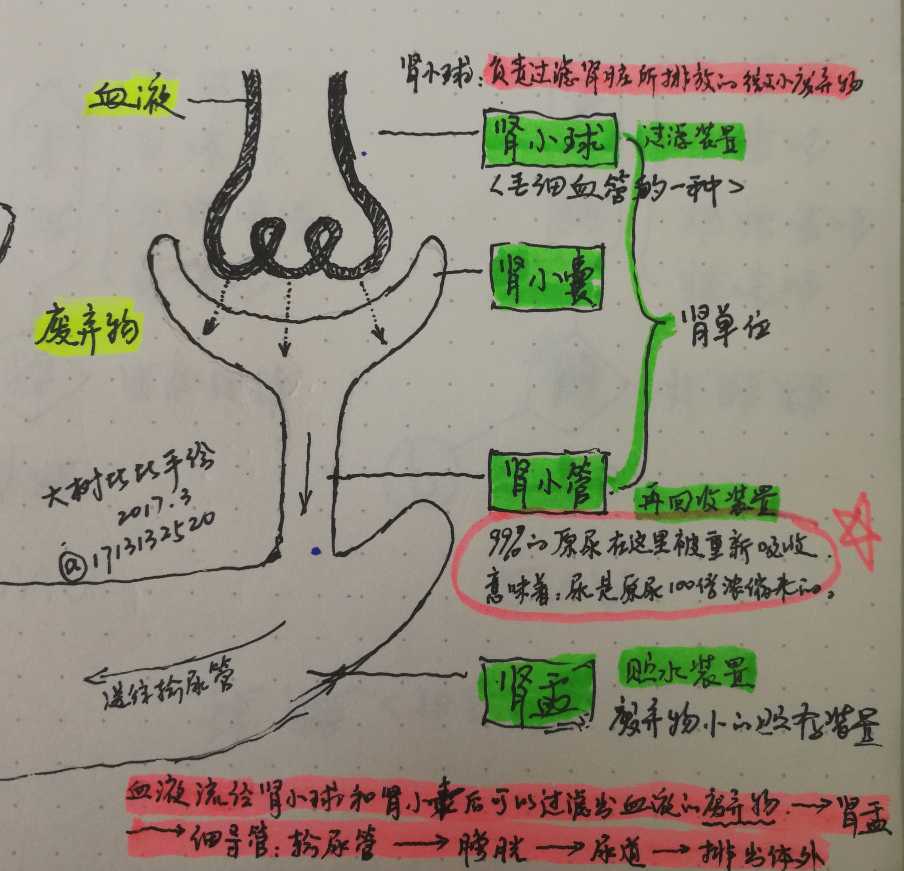 肾小球:负责过滤肾脏所排放的微小废弃物
血液
肾小球
过滤装置
<毛细血管的一种>
肾小囊
废弃物
肾单位
肾小管
再回收装置
99%的原尿在这里被重新吸收
意味着:尿是原尿100倍浓缩来的。
大树比比手绘
2017.3
@1713132520
肾盂
贮水装置
废弃物小的贮存装置
送往输尿管
血液流经肾小球和肾小囊后可以过滤出血液的废弃物→肾盂
→细导管:输尿管→膀胱→尿道→排出体外